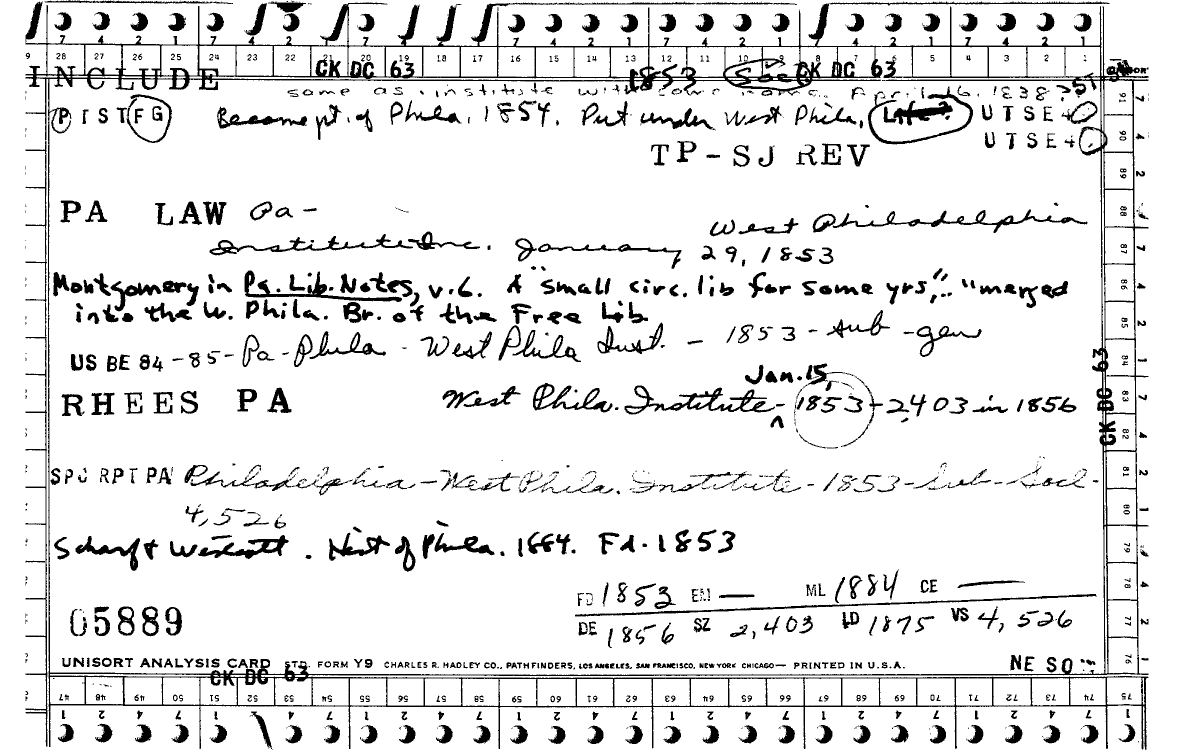 7 4 2 1 7 4 2 1 7 4 2 1 7 4 2 1 7 4 2 1 7 4 2 1 7 4 2 1
28 27 26 25 24 23 22 21 20 19 18 17 16 15 14 13 12 11 10 9 8 7 6 5 4 3 2 1
INCLUDE CK DC 63 1853 Soc CK DC 63
same as institute with same name. April 16, 1838?
P T S T F G Became pt. of Phila. 1854. Put under West Phila. Life? U T S E 4
U T S E 4
TP-SJ REV
PA LAW Pa-
West Philadelphia
Institute Inc. January 29, 1853
Montgomery in Pa. Lib. Notes, v.6. A "small circ. lib for some yrs,".. "merged
into the W. Phila. Br. of the Free Lib
US BE 84-85-Pa-Phila - West Phila Inst. - 1853-sub-gen
Jan. 15,
RHEES PA West Phila. Institute - 1853-2,403 in 1856
SPC RPT PA Philadelphia-West Phila. Institute-1853-Sub-Socl-
4,526
Scharf & Westcott. Hist of Phila. 1884. Fd. 1853
FD 1853 EM — ML 1884 CE —
05889 DE 1856 SZ 2,403 LD 1875 VS 4,526
UNISORT ANALYSIS CARD STD. FORM Y9 CHARLES R. HADLEY CO., PATHFINDERS, LOS ANGELES, SAN FRANCISCO, NEW YORK CHICAGO— PRINTED IN U.S.A. NE SO
CK DC 63
CK DC 63
91 90 89 88 87 86 85 84 83 82 81 80 79 78 77 76
47 48 49 50 51 52 53 54 55 56 57 58 59 60 61 62 63 64 65 66 67 68 69 70 71 72 73 74 75